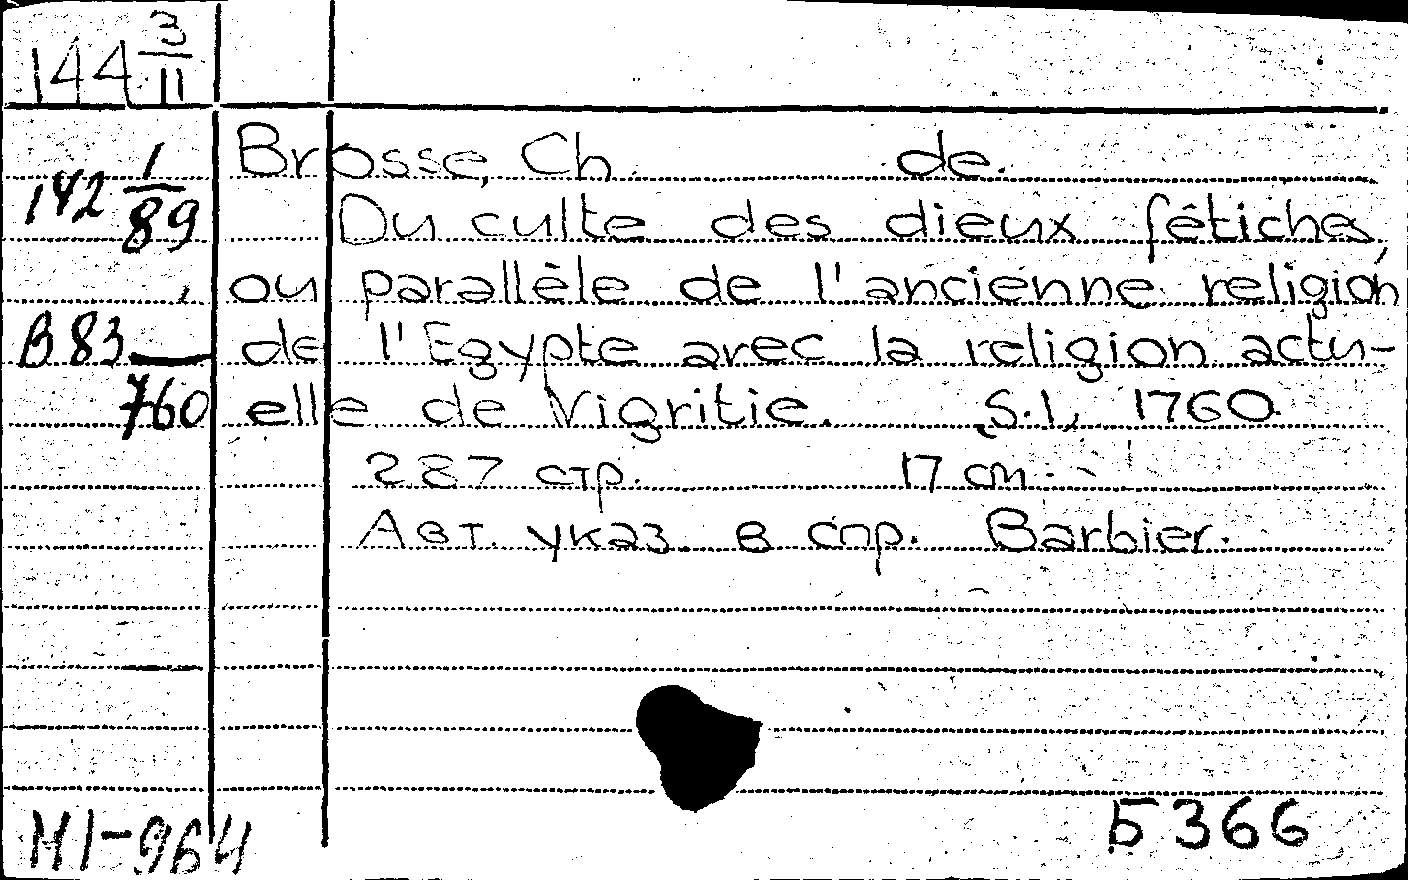 144 3/11
Brosse, Ch. de.
142 1/89
Du culte des dieux fétiches,
ou parallèle de l'ancienne religion
B 83—
de l'Egypte avec la religion actu-
760
elle de Nigritie. S.l., 1760.
287 стр. 17 cm.
Авт. указ. в спр. Barbier.
МІ-964
Б 366